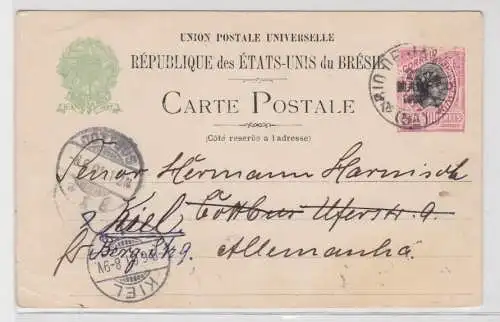 UNION POSTALE UNIVERSELLE
RÉPUBLIQUE des ÉTATS-UNIS du BRÉSIL
CARTE POSTALE
(Côté reservée a l'adresse)
RIO DE JAN
(5A)
COTTBUS
Senor Hermann Harnisch
Kiel Cottbus Uferstr. 9.
Bergstr. 9. Allemanha.
8-9V.
KIEL